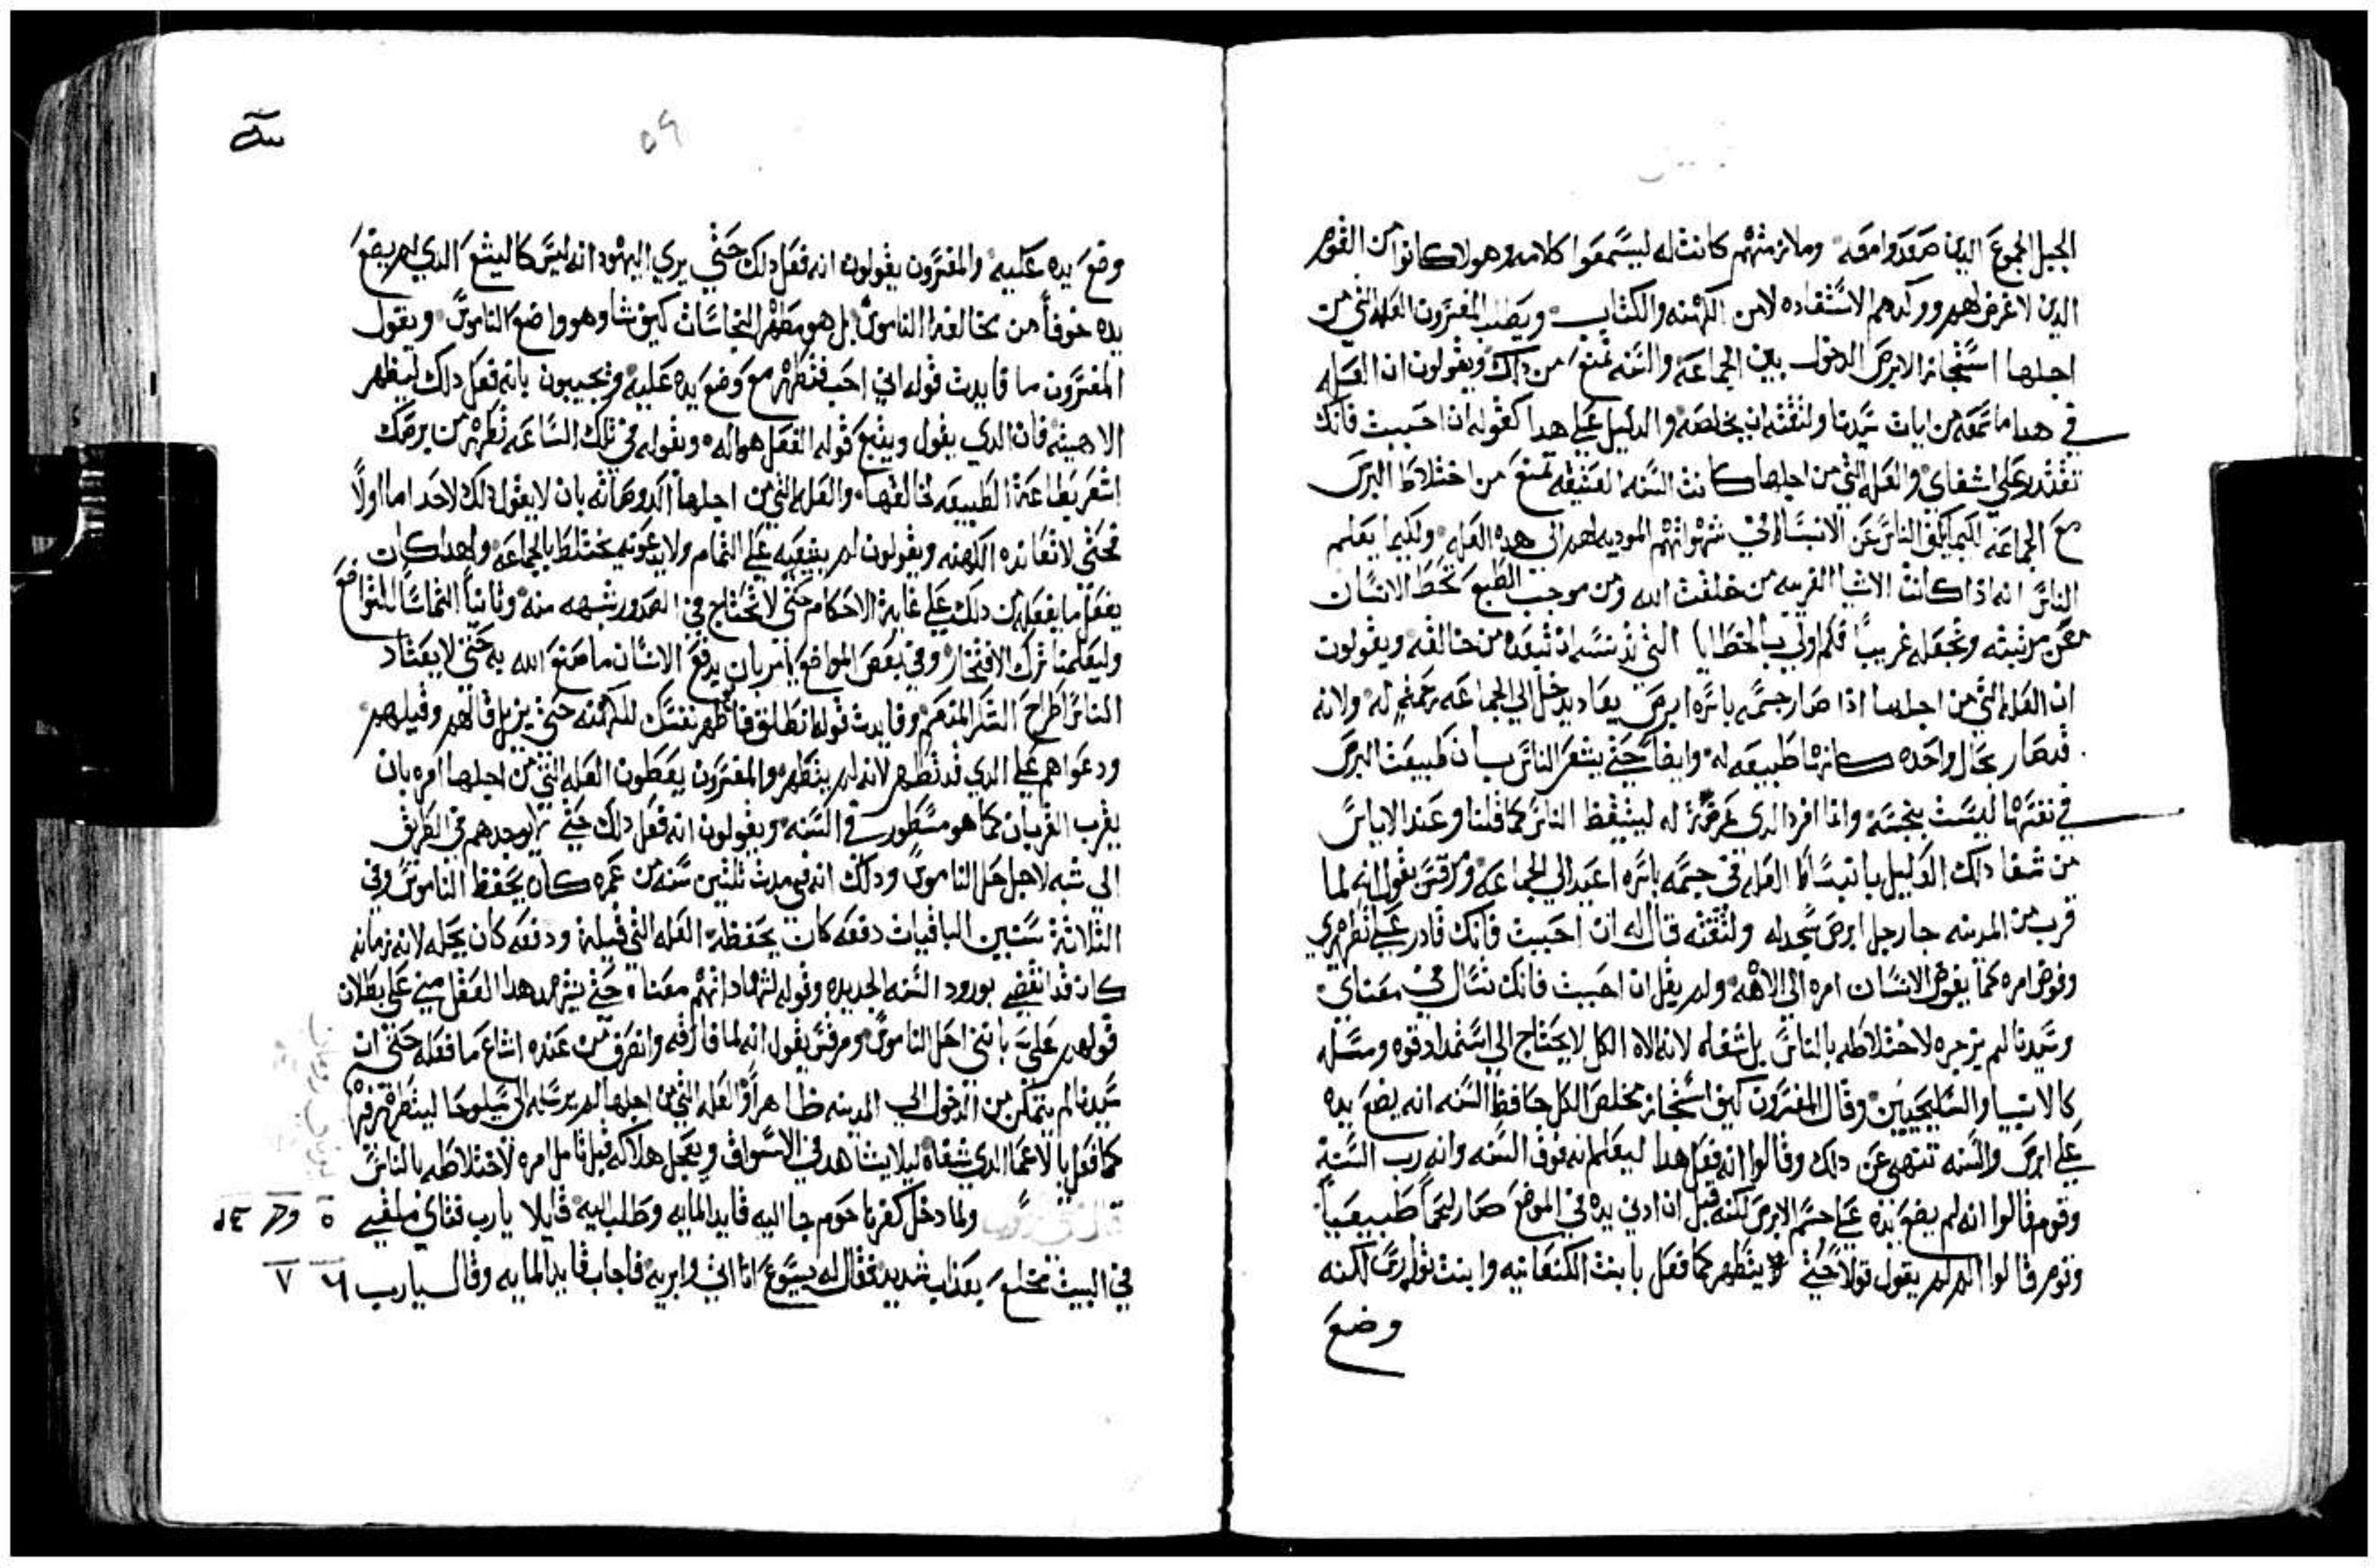 الجبل الجموع الدين صعدوا معه وملازمتهم كانت له ليسمعوا كلامه وهولا كانوا من القوم
الدين لا غرض لهم ووكدهم الاستفاده لا من الكهنه والكتاب ويطلب المفسرون العله التي من
اجلها استجاز الابرص الدخول بين الجماعه والسنه تمنع من دلك ويقولون ان العله
في هدا ما سمعه من ايات سيدنا ولثقته انه يخلصه والدليل علي هدا كقوله ان احببت فانك
تقتدر علي اشفاي والعله التي من اجلها كانت السنه العتيقه تمنع من اختلاط البرص
مع الجماعه لكيما يكف الناس عن الانبساط في شهواتهم الموديه لهم الى هده العله ولكيما يعلم
الناس انه ادا كانت الاشيا الغريبه من خلقت الله ومن موجب الطبع تحط الانسان
عن مرتبته وتجعله غريباً فكم اولي بالخطايا التي تدنسه ان تبعده من خالقه ويقولون
ان العله التي من اجلها ادا صار جسمه باسره ابرص يعاد يدخل الي الجماعه رحمتهم له ولانه
قد صار بحال واحده كانها طبيعه له وايضاً حتي يشعر الناس بان طبيعت البرص
في نفسها ليست بنجسه وانما افرد الدي عرضة له ليتيقظ الناس كما قلنا وعند الاياس
من شفا دلك القليل بانبساط العله في جسمه باسره اعيد الي الجماعه ومرقس يقول انه لما
قرب من المدينه جا رجل ابرص سجد له ولثقته قال له ان احببت فانك قادر علي تطهيري
وفوض امره كما يفوض الانسان امره الي الاهه ولم يقل ان احببت فانك تسال في معناي
وسيدنا لم يزجره لاختلاطه بالناس بل شفاه لانه لاه الكل لا يحتاج الي استمداد قوه ومسله
كالانبيا والسليحيين وقال المفسرون كيف استجاز مخلص الكل حافظ السنه انه يضع يده
علي ابرص والسنه تنهي عن دلك وقالوا انه فعل هدا ليعلم انه فوق السنه وانه رب السنة
وقوم قالوا انه لم يضع يده علي جسم الابرص لكنه قبل ان ادني يده في الموضع صار لحماً طبيعياً
وقوم قالوا لم لم يقول قولاً حتي يتطهر كما فعل بابنت الكنعانيه وابنت تولمرس لكنه
وضع
٥٩
وضع يده عليه والمفسرون يقولون انه فعل دلك حتي يري اليهود انه ليس كاليشع الدي لم يضع
يده خوفاً من مخالفة الناموس بل هو مطهر النجاسات كيف شا وهو واضع الناموس ويقول
المفسرون ما فايدت قوله اني احب فتطهر مع وضع يده عليه ويجيبون بانه فعل دلك ليظهر
الاهيته فان الدي يقول ويتبع قوله الفعل هو اله وبقوله في تلك الساعه تطهر من برصك
اشعر بطاعة الطبيعه لخالقها والعله التي من اجلها اكد وصاته بان لا يقول دلك لاحد اما اولاً
فحتي لا تعانده الكهنه ويقولون لم ينقيه علي التمام ولا يدعونه يختلط بالجماعه ولهدا كان
يفعل ما يفعله من دلك علي غاية الاحكام حتي لا تحتاج في الصدور شبهه منه وثانياً التماساً للتواضع
وليعلمنا ترك الافتخار وفي بعض المواضع يامر بان يدفع الانسان ما صنع الله به حتي لا يعتاد
الناس اطراح الشكر المنعم وفايدت قوله انطلق فاظهر نفسك للكهنه حتي يزيل قالهم وقيلهم
ودعواهم علي الدي قد تطهر لانه لم يتطهر والمفسرون يعطون العله التي من اجلها امره بان
يقرب القربان كما هو مسطور في السنه ويقولون انه فعل دلك حتي لا يوجدهم في الطريق
الي شبه لاجل حل الناموس ودلك انه في مدت ثلثين سنه من عمره كان يحفظ الناموس وفي
الثلاثة سنين الباقيات دفعه كان يحفظه العله التي قيلة ودفعه كان يحله لانه زمانه
كان قد انقضي بورود السنه الجديده وقوله لشهادتهم معناه حتي يشهد هدا الفعل مني علي بطلان
قولهم علي بانني احل الناموس ومرقس يقول انه لما فارقه وانصرف من عنده اشاع ما فعله حتي ان
سيدنا لم يتمكن من الدخول الي المدينه ظاهراً والعله التي من اجلها لم يرسله الي سيلوحا ليتطهر فيه
كما فعل بالاعما الدي شفاه ليلا يشاهد في الاسواق ويعجل هلاكه قبل تامل امره لاختلاطه بالناس
ولما دخل كفرناحوم جا اليه قايد المايه وطلب اليه قايلا يارب فتاي ملقي ٥
في البيت مخلع بعداب شديد فقال له يسوع انا اتي وابريه فاجاب قايد المايه وقال يارب ٦ ٧